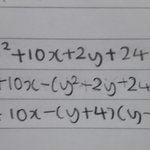 ²+10x+2y+24
+10x-(y²+2y+24
+10x-(y+4)(y-